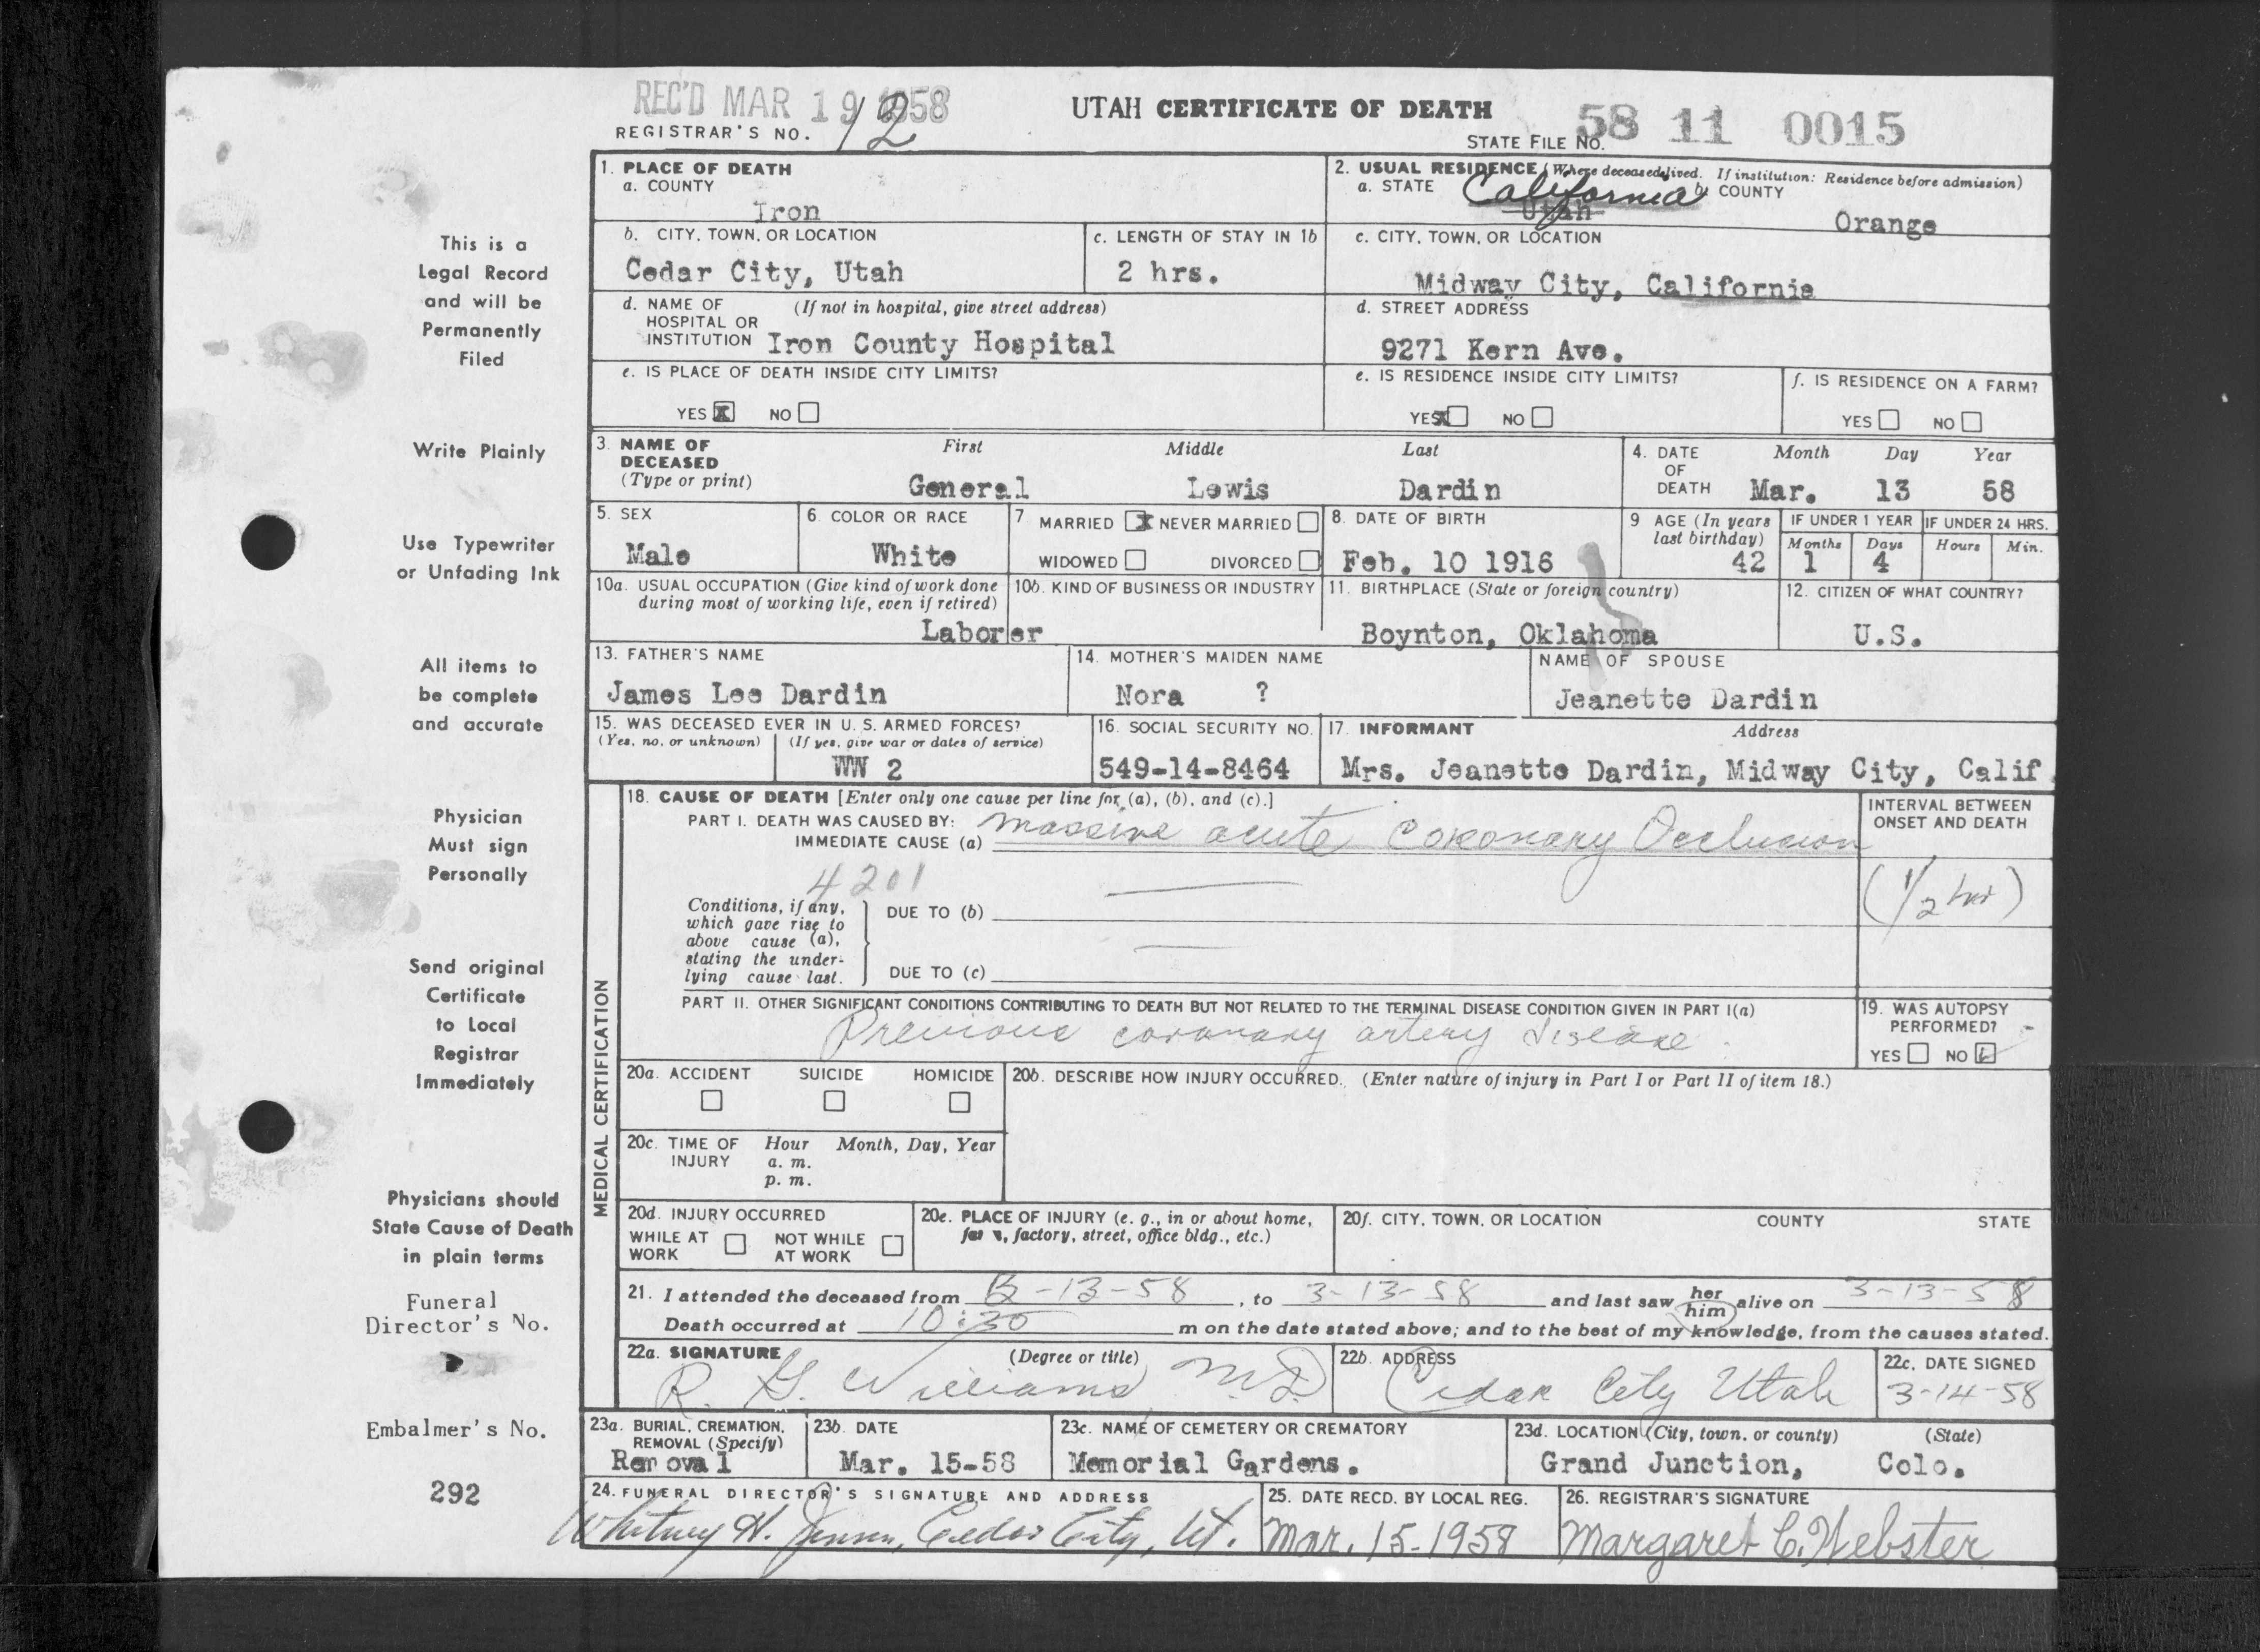 REC'D MAR 19 1958
UTAH CERTIFICATE OF DEATH
58 11 0015
REGISTRAR'S NO. 12
STATE FILE NO.
1. PLACE OF DEATH
a. COUNTY
Iron
2. USUAL RESIDENCE (Where deceased lived. If institution: Residence before admission)
a. STATE California b. COUNTY
Utah
Orange
b. CITY, TOWN, OR LOCATION
Cedar City, Utah
c. LENGTH OF STAY IN 1b
2 hrs.
c. CITY, TOWN, OR LOCATION
Midway City, California
d. NAME OF (If not in hospital, give street address)
HOSPITAL OR
INSTITUTION Iron County Hospital
d. STREET ADDRESS
9271 Kern Ave.
e. IS PLACE OF DEATH INSIDE CITY LIMITS?
YES X NO
e. IS RESIDENCE INSIDE CITY LIMITS?
YES X NO
f. IS RESIDENCE ON A FARM?
YES NO
3. NAME OF DECEASED (Type or print)
First Middle Last
General Lewis Dardin
4. DATE OF DEATH
Month Day Year
Mar. 13 58
5. SEX
Male
6. COLOR OR RACE
White
7 MARRIED X NEVER MARRIED
WIDOWED DIVORCED
8. DATE OF BIRTH
Feb. 10 1916
9 AGE (In years last birthday)
42
IF UNDER 1 YEAR
Months Days
1 4
IF UNDER 24 HRS.
Hours Min.
10a. USUAL OCCUPATION (Give kind of work done during most of working life, even if retired)
Laborer
10b. KIND OF BUSINESS OR INDUSTRY
11. BIRTHPLACE (State or foreign country)
Boynton, Oklahoma
12. CITIZEN OF WHAT COUNTRY?
U.S.
13. FATHER'S NAME
James Lee Dardin
14. MOTHER'S MAIDEN NAME
Nora ?
NAME OF SPOUSE
Jeanette Dardin
15. WAS DECEASED EVER IN U. S. ARMED FORCES?
(Yes, no, or unknown) (If yes, give war or dates of service)
WW 2
16. SOCIAL SECURITY NO.
549-14-8464
17. INFORMANT Address
Mrs. Jeanette Dardin, Midway City, Calif
MEDICAL CERTIFICATION
18. CAUSE OF DEATH [Enter only one cause per line for (a), (b), and (c).]
PART I. DEATH WAS CAUSED BY:
IMMEDIATE CAUSE (a) massive acute Coronary Occlusion
INTERVAL BETWEEN ONSET AND DEATH
(1/2 hr)
4201
Conditions, if any, which gave rise to above cause (a), stating the underlying cause last.
DUE TO (b)
DUE TO (c)
PART II. OTHER SIGNIFICANT CONDITIONS CONTRIBUTING TO DEATH BUT NOT RELATED TO THE TERMINAL DISEASE CONDITION GIVEN IN PART I(a)
Previous coronary artery disease
19. WAS AUTOPSY PERFORMED?
YES NO
20a. ACCIDENT SUICIDE HOMICIDE
20b. DESCRIBE HOW INJURY OCCURRED. (Enter nature of injury in Part I or Part II of item 18.)
20c. TIME OF INJURY Hour Month, Day, Year
a. m.
p. m.
20d. INJURY OCCURRED
WHILE AT WORK NOT WHILE AT WORK
20e. PLACE OF INJURY (e. g., in or about home, farm, factory, street, office bldg., etc.)
20f. CITY, TOWN, OR LOCATION COUNTY STATE
21. I attended the deceased from 3-13-58, to 3-13-58 and last saw her him alive on 3-13-58
Death occurred at 10:30 m on the date stated above; and to the best of my knowledge, from the causes stated.
22a. SIGNATURE (Degree or title)
R. G. Williams MD
22b. ADDRESS
Cedar City Utah
22c. DATE SIGNED
3-14-58
23a. BURIAL, CREMATION, REMOVAL (Specify)
Removal
23b. DATE
Mar. 15-58
23c. NAME OF CEMETERY OR CREMATORY
Memorial Gardens.
23d. LOCATION (City, town, or county) (State)
Grand Junction, Colo.
24. FUNERAL DIRECTOR'S SIGNATURE AND ADDRESS
Whitney H. Jensen, Cedar City, Ut.
25. DATE RECD. BY LOCAL REG.
Mar. 15-1958
26. REGISTRAR'S SIGNATURE
Margaret C. Webster
This is a
Legal Record
and will be
Permanently
Filed
Write Plainly
Use Typewriter
or Unfading Ink
All items to
be complete
and accurate
Physician
Must sign
Personally
Send original
Certificate
to Local
Registrar
Immediately
Physicians should
State Cause of Death
in plain terms
Funeral
Director's No.
Embalmer's No.
292